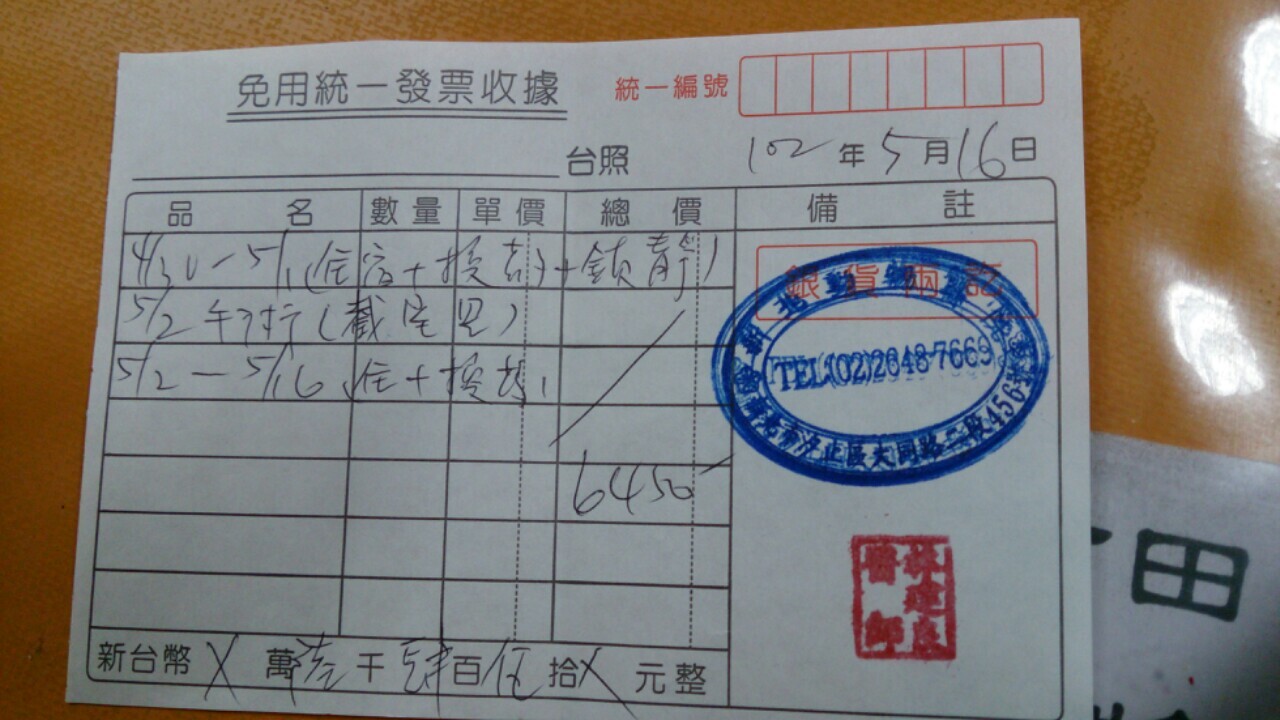 免用統一發票收據
統一編號
台照
102年5月16日
品名 數量 單價 總價 備註
4/30-5/1(住宿+換藥+鎮靜)
銀貨兩訖
5/2
TEL(02)2648-7669
5/2-5/16 住+換藥
新北市汐止區大同路二段456號
6450
醫師
新台幣X萬陸千肆百伍拾X元整
田